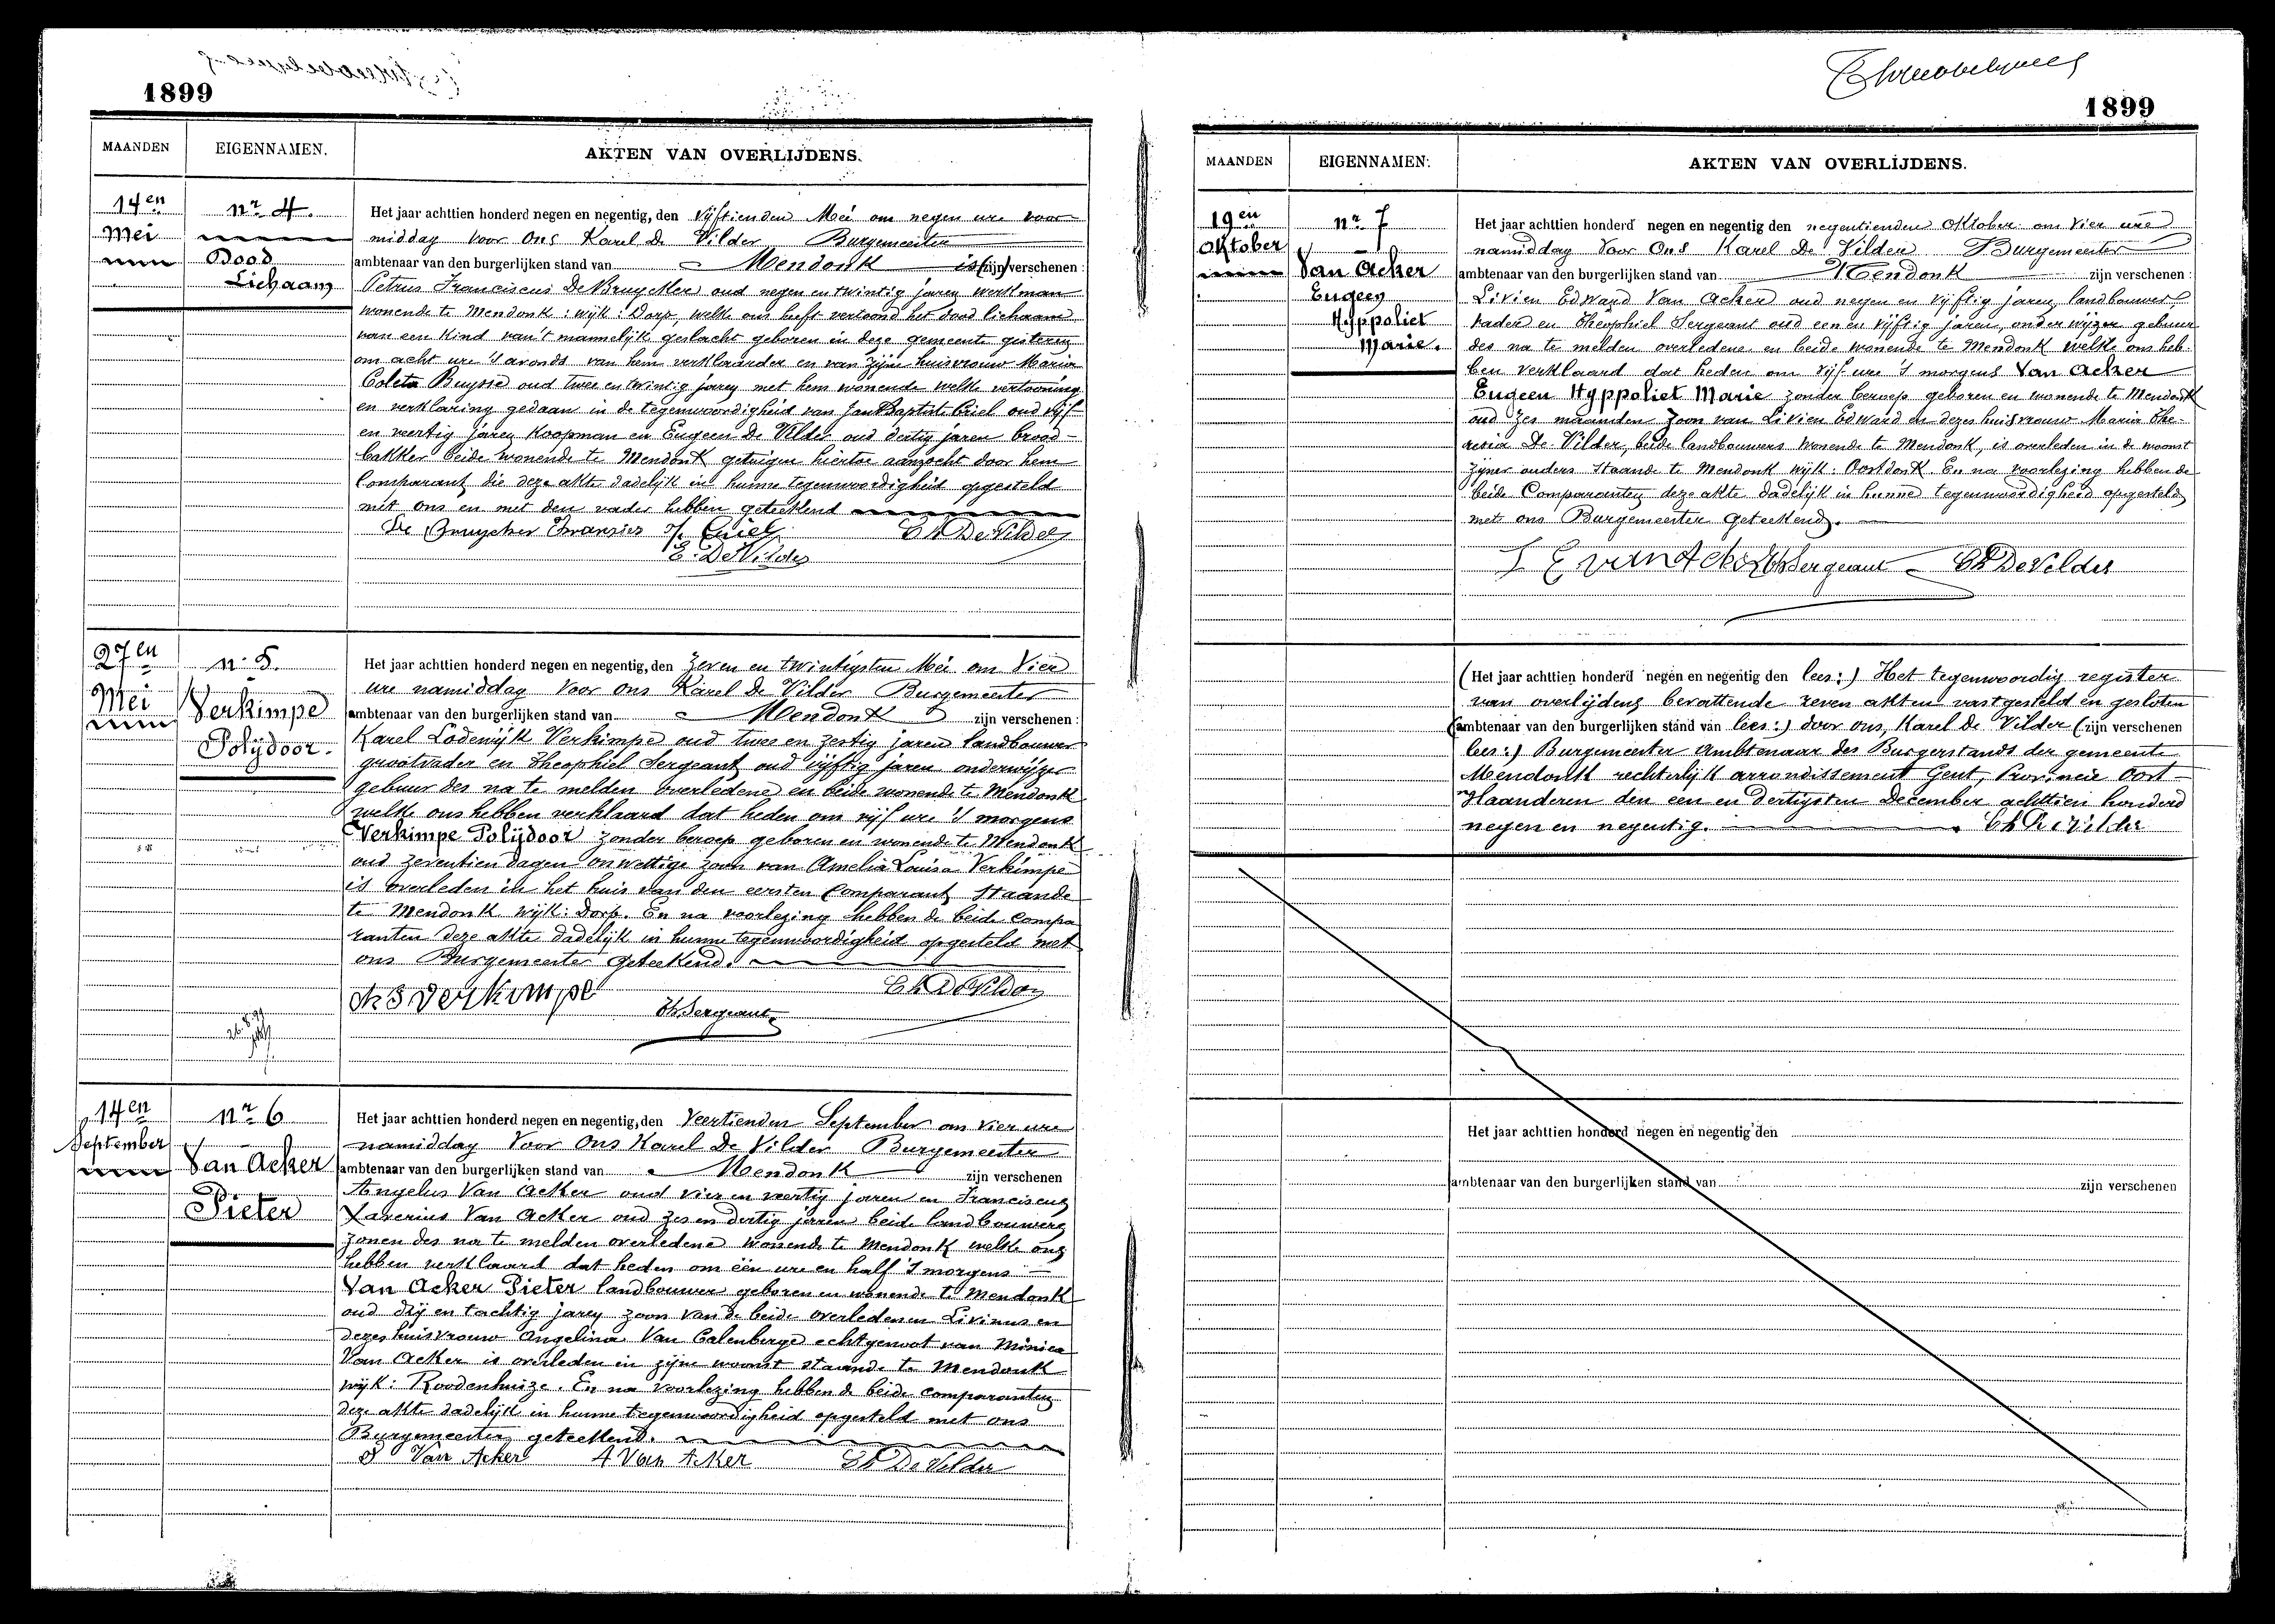 1899
MAANDEN EIGENNAMEN. AKTEN VAN OVERLIJDENS.
14en Mei
nr 4.
Dood
Lichaam
Het jaar achttien honderd negen en negentig, den Vijftienden Mei om negen ure voor
middag voor ons Karel De Vilder Burgemeester
ambtenaar van den burgerlijken stand van Mendonk is (zijn) verschenen :
Petrus Franciscus De Bruycker oud negen en twintig jaren werkman
wonende te Mendonk : wijk : Dorp, welke ons heeft vertoond het dood lichaam
van een kind van 't mannelijk geslacht geboren in deze gemeente gisteren
om acht ure 's avonds van hem verklaarder en van zijne huisvrouw Maria
Coleta Buysse oud twee en twintig jaren met hem wonende welke vertooning
en verklaring gedaan in de tegenwoordigheid van Jan Baptist Criel oud vijf
en veertig jaren Koopman en Eugeen De Vilder oud dertig jaren brood-
bakker beide wonende te Mendonk getuigen hiertoe aanzocht door hem
Comparant, die deze akte dadelijk in hunne tegenwoordigheid opgesteld
met ons en met den vader hebben geteekend
De Bruycker Fransies J. Criel Ch De Vilder
E. De Vilder
27en Mei
nr 5.
Verkimpe
Polijdoor.
Het jaar achttien honderd negen en negentig, den Zeven en twintigsten Mei om Vier
ure namiddag voor ons Karel De Vilder Burgemeester
ambtenaar van den burgerlijken stand van Mendonk zijn verschenen :
Karel Lodewijk Verkimpe oud twee en zestig jaren landbouwer
grootvader en Theophiel Sergeant oud vijftig jaren onderwijzer
gebuur des na te melden overledene en beide wonende te Mendonk
welke ons hebben verklaard dat heden om vijf ure 's morgens
Verkimpe Polijdoor zonder beroep geboren en wonende te Mendonk
oud zeventien dagen onwettige zoon van Amelia Louisa Verkimpe
is overleden in het huis van den eersten Comparant staande
te Mendonk wijk : Dorp. En na voorlezing hebben de beide compa
ranten deze akte dadelijk in hunne tegenwoordigheid opgesteld met
ons Burgemeester geteekend.
Verkimpe Th Sergeant Ch De Vilder
14en September
nr 6
Van Acker
Pieter
Het jaar achttien honderd negen en negentig, den Veertienden September om vier ure
namiddag Voor Ons Karel De Vilder Burgemeester
ambtenaar van den burgerlijken stand van Mendonk zijn verschenen
Angelus Van Acker oud vier en veertig jaren en Franciscus
Xaverius Van Acker oud zes en dertig jaren beide landbouwers
zonen des na te melden overledene wonende te Mendonk welke ons
hebben verklaard dat heden om één ure en half 's morgens
Van Acker Pieter landbouwer geboren en wonende te Mendonk
oud drij en tachtig jaren zoon van de beide overledenen Livinus en
dezes huisvrouw Angelina Van Calenberge echtgenoot van Monica
Van Acker is overleden in zijne woonst staande te Mendonk
wijk : Roodenhuize. En na voorlezing hebben de beide comparanten
deze akte dadelijk in hunne tegenwoordigheid opgesteld met ons
Burgemeester geteekend.
Van Acker A Van Acker Ch De Vilder
1899
MAANDEN EIGENNAMEN. AKTEN VAN OVERLIJDENS.
19en Oktober
nr 7
Van Acker
Eugeen
Hyppoliet
Marie.
Het jaar achttien honderd negen en negentig den negentienden Oktober om Vier ure
namiddag Voor Ons Karel De Vilder Burgemeester
ambtenaar van den burgerlijken stand van Mendonk zijn verschenen :
Livien Edward Van Acker oud negen en vijftig jaren landbouwer
vader en Theophiel Sergeant oud een en vijftig jaren, onderwijzer gebuur
des na te melden overledene en beide wonende te Mendonk welke ons heb-
ben verklaard dat heden om vijf ure 's morgens Van Acker
Eugeen Hyppoliet Marie zonder beroep geboren en wonende te Mendonk
oud zes maanden zoon van Livien Edward en dezes huisvrouw Maria The-
resia De Vilder, beide landbouwers wonende te Mendonk, is overleden in de woonst
zijner ouders staande te Mendonk wijk : Oostdonk En na voorlezing hebben de
beide Comparanten deze akte dadelijk in hunne tegenwoordigheid opgesteld
met ons Burgemeester geteekend.
L E van Acker Th Sergeant Ch De Vilder
(Het jaar achttien honderd negen en negentig den lees :) Het tegenwoordig register
van overlijdens bevattende zeven akten vastgesteld en gesloten
(ambtenaar van den burgerlijken stand van lees :) door ons, Karel De Vilder (zijn verschenen
lees :) Burgemeester Ambtenaar des Burgerstands der gemeente
Mendonk rechterlijk arrondissement Gent, Provincie Oost-
Vlaanderen den een en dertigsten December achttien honderd
negen en negentig. Ch De Vilder
Het jaar achttien honderd negen en negentig den
ambtenaar van den burgerlijken stand van zijn verschenen